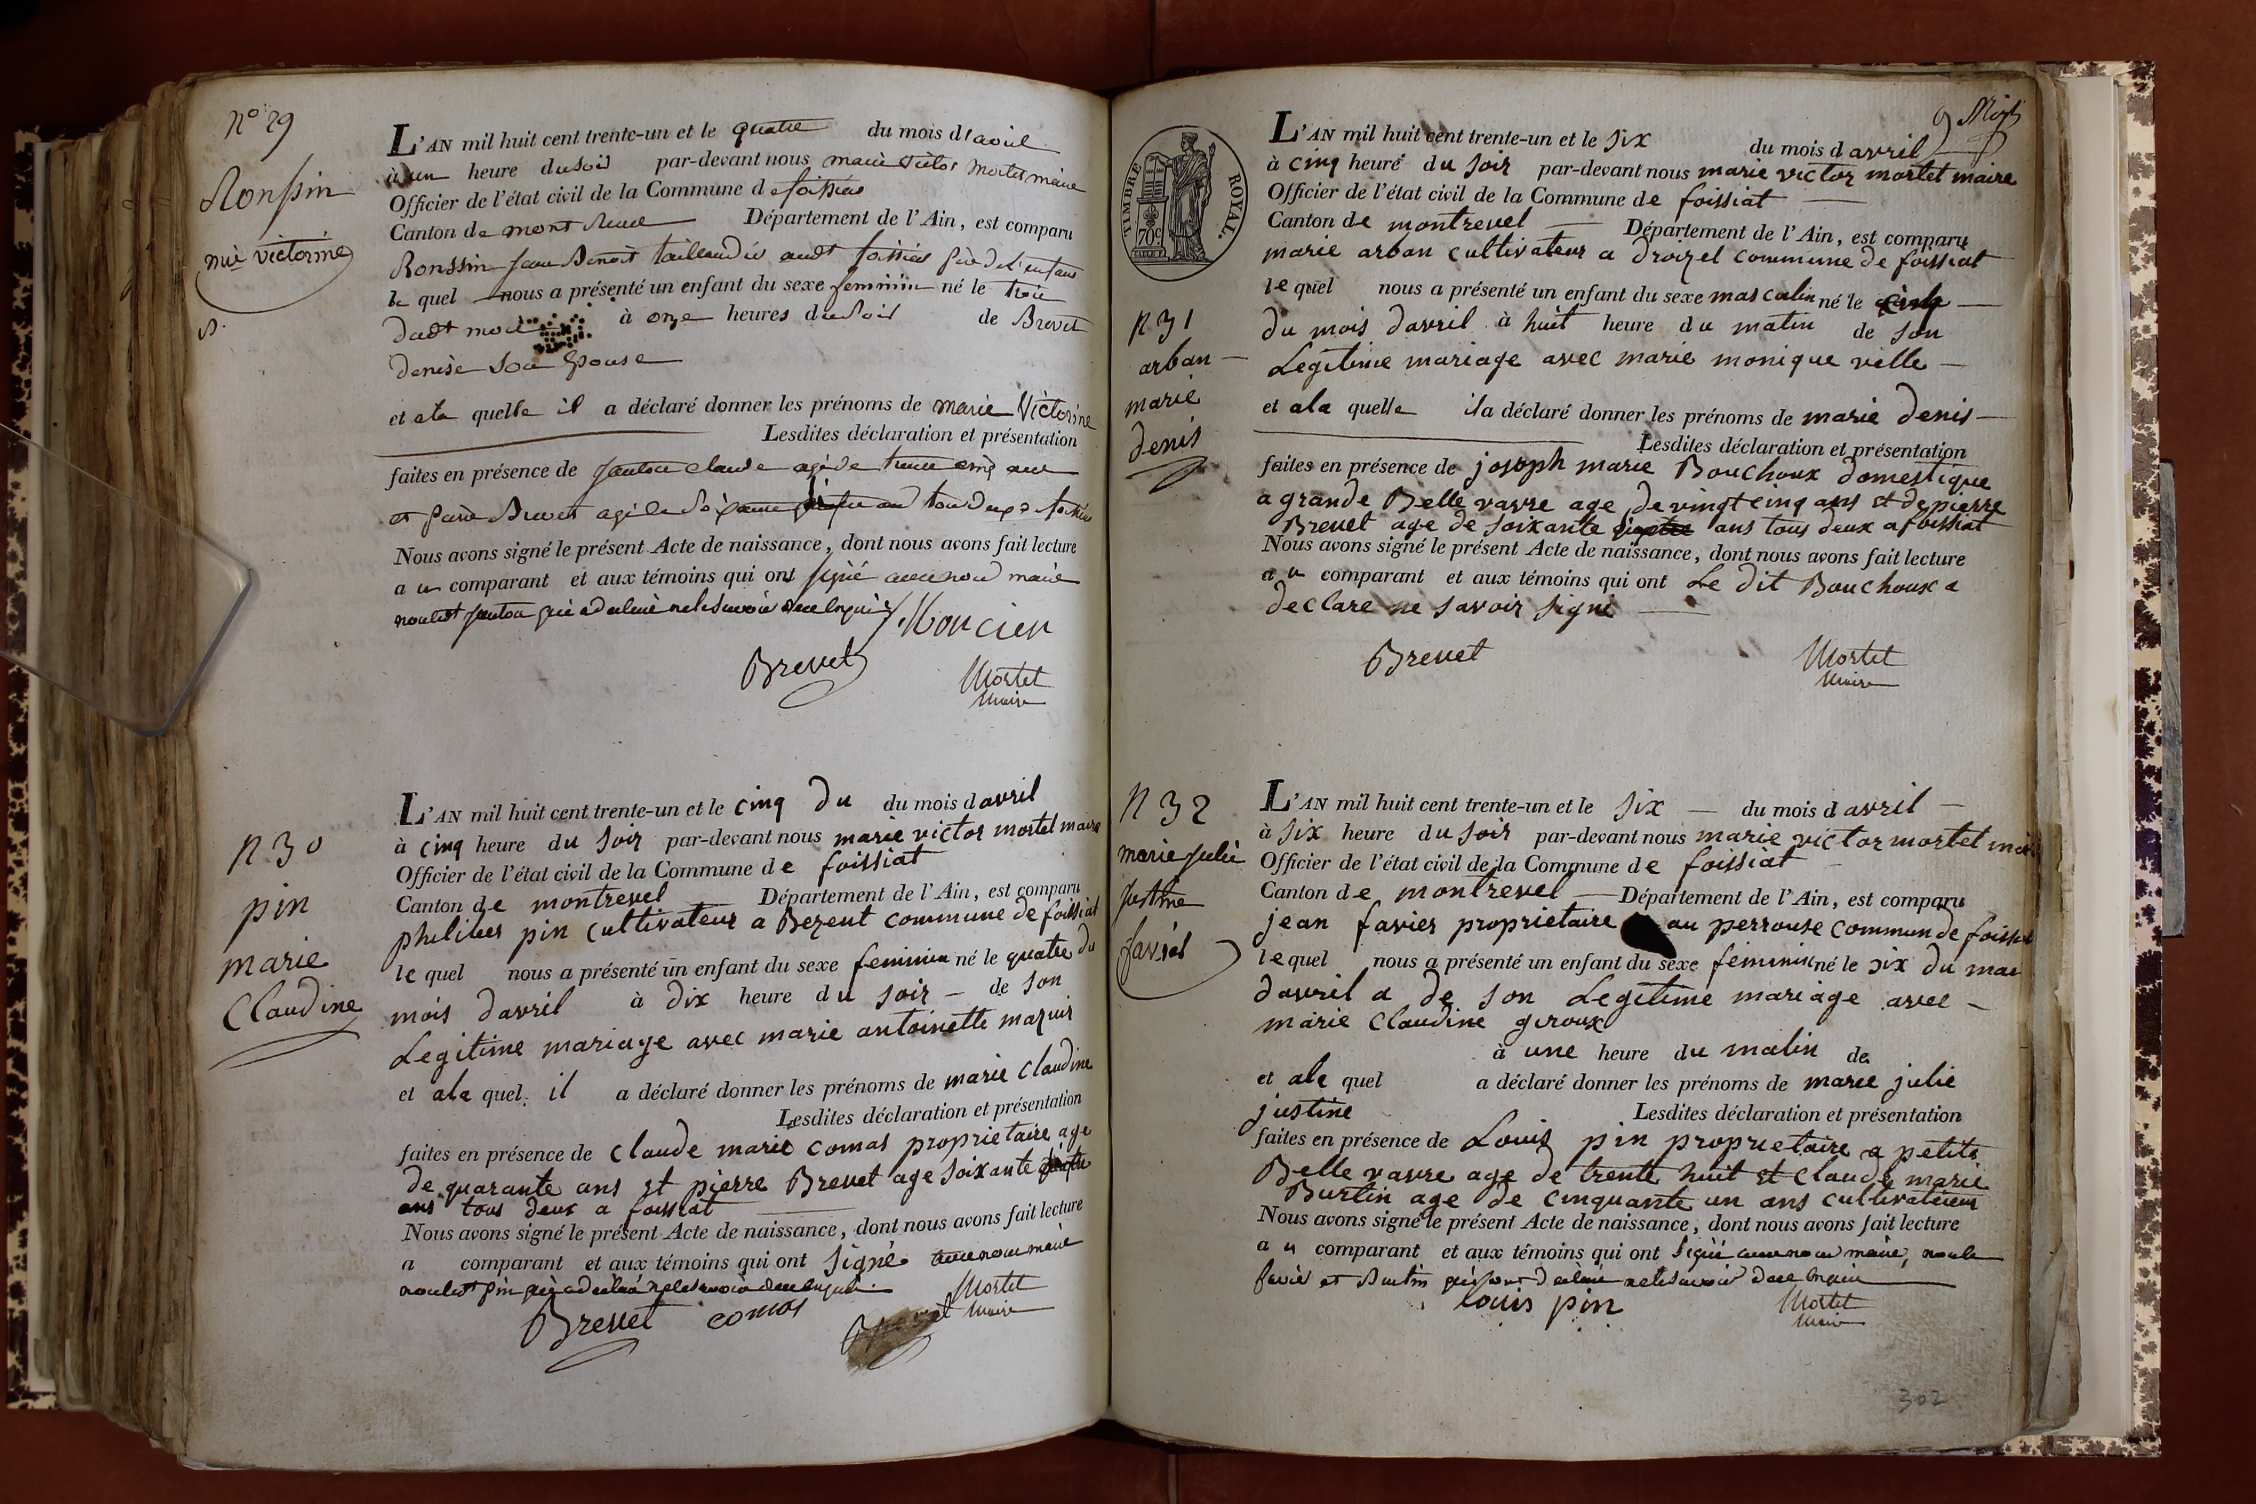 N° 29
Ronssin
mie victorine
L'AN mil huit cent trente-un et le quatre du mois d'avril
à un heure du Soir par-devant nous marie victor mortet maire
Officier de l'état civil de la Commune de foissiat
Canton de mont Revel Département de l'Ain, est comparu
Ronssin jean Benoit taillandier audt foissiat père de l'enfant
le quel nous a présenté un enfant du sexe feminin né le trois
dudt mois à onze heures du Soir de Brevet
denise Son Epouse
et a la quelle il a déclaré donner les prénoms de marie Victorine
Lesdites déclaration et présentation
faites en présence de claude agé de trente cinq ans
et pierre Brevet agé de Soixante ans tous deux a foissiat
Nous avons signé le présent Acte de naissance, dont nous avons fait lecture
au comparant et aux témoins qui ont signé avec nous maire
qui a déclaré ne le savoir de ce enquis
Moncier
Brevet
Mortet
Maire
N 30
pin
marie
Claudine
L'AN mil huit cent trente-un et le cinq du du mois d avril
à cinq heure du soir par-devant nous marie victor mortet maire
Officier de l'état civil de la Commune de foissiat
Canton de montrevel Département de l'Ain, est comparu
philiber pin cultivateur a Bezent commune de foissiat
le quel nous a présenté un enfant du sexe feminin né le quatre du
mois d avril à dix heure du soir de son
Legitime mariage avec marie antoinette mazuir
et a la quel il a déclaré donner les prénoms de marie Claudine
Lesdites déclaration et présentation
faites en présence de claude marie comas proprietaire age
de quarante ans et pierre Brevet age soixante
ans tous deux a foissiat
Nous avons signé le présent Acte de naissance, dont nous avons fait lecture
a comparant et aux témoins qui ont signé avec nous maire
pin qui a déclaré ne le savoir de ce enquis
Brevet comas
Mortet
Maire
TIMBRE ROYAL.
70c
N 31
arban
marie
denis
L'AN mil huit cent trente-un et le six du mois d avril
à cinq heure du soir par-devant nous marie victor mortet maire
Officier de l'état civil de la Commune de foissiat
Canton de montrevel Département de l'Ain, est comparu
marie arban cultivateur a droizel commune de foissiat
le quel nous a présenté un enfant du sexe masculin né le cinq
du mois d avril à huit heure du matin de son
Legitime mariage avec marie monique velle
et a la quelle il a déclaré donner les prénoms de marie denis
Lesdites déclaration et présentation
faites en présence de joseph marie Bouchoux domestique
a grande Belle vavre age de vingt cinq ans et de pierre
Brevet age de soixante ans tous deux a foissiat
Nous avons signé le présent Acte de naissance, dont nous avons fait lecture
au comparant et aux témoins qui ont Le dit Bouchoux a
declare ne savoir signé
Brevet
Mortet
Maire
N 32
marie Julie
Justine
favier
L'AN mil huit cent trente-un et le six du mois d avril
à six heure du soir par-devant nous marie victor mortet maire
Officier de l'état civil de la Commune de foissiat
Canton de montrevel Département de l'Ain, est comparu
jean favier proprietaire au perrouse commun de foissiat
le quel nous a présenté un enfant du sexe feminin né le six du mai
d avril a de son Legitime mariage avec
marie Claudine giroux
à une heure du matin de
et a la quel a déclaré donner les prénoms de marie julie
justine Lesdites déclaration et présentation
faites en présence de Louis pin proprietaire a petite
Belle vavre age de trente huit et claude marie
Burtin age de cinquante un ans cultivateur
Nous avons signé le présent Acte de naissance, dont nous avons fait lecture
au comparant et aux témoins qui ont signé avec nous maire
favier et Burtin qui ont déclaré ne le savoir de ce enquis
louis pin
Mortet
Maire
302